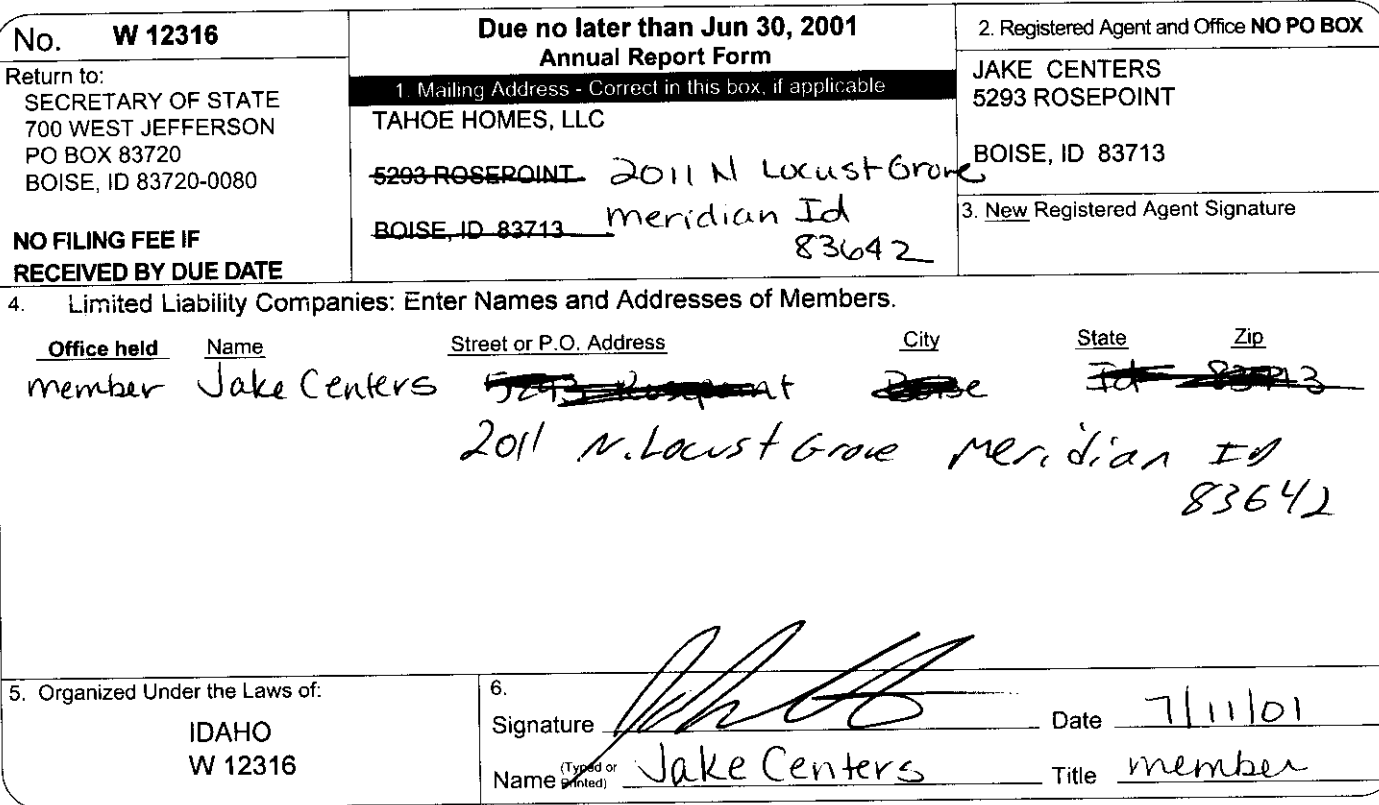 No. W 12316
Return to:
SECRETARY OF STATE
700 WEST JEFFERSON
PO BOX 83720
BOISE, ID 83720-0080
NO FILING FEE IF
RECEIVED BY DUE DATE
Due no later than Jun 30, 2001
Annual Report Form
1. Mailing Address - Correct in this box, if applicable
TAHOE HOMES, LLC
5293 ROSEPOINT 2011 N Locust Grove
BOISE, ID 83713 meridian Id
83642
2. Registered Agent and Office NO PO BOX
JAKE CENTERS
5293 ROSEPOINT
BOISE, ID 83713
3. New Registered Agent Signature
4. Limited Liability Companies: Enter Names and Addresses of Members.
Office held Name Street or P.O. Address City State Zip
member Jake Centers 5293 Rosepoint Boise Id 83713
2011 N. Locust Grove Meridian Id
83642
5. Organized Under the Laws of:
IDAHO
W 12316
6.
Signature Date 7/11/01
Name (Typed or Printed) Jake Centers Title member